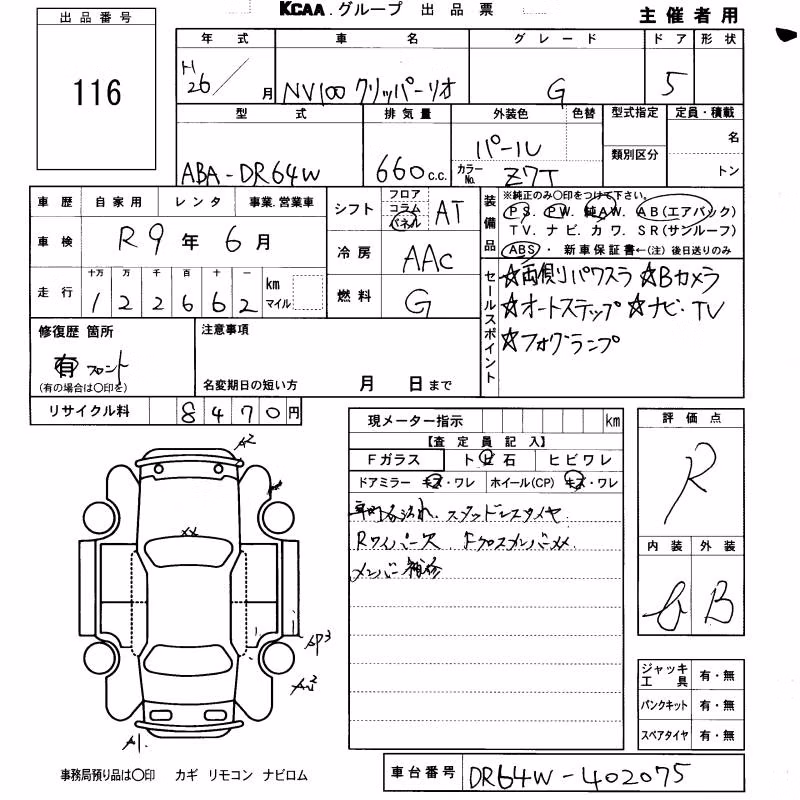 KCAA.グループ 出品票
主催者用
出品番号
116
年式 車名 グレード ドア 形状
H26/月 NV100クリッパーリオ G 5
型式 排気量 外装色 色替 型式指定 定員・積載
ABA-DR64W 660c.c. パール 名
カラーNo. Z7T 類別区分 トン
車歴 自家用 レンタ 事業.営業車
シフト フロア コラム パネル AT
車検 R9年6月
冷房 AAC
走行 十万 万 千 百 十 一
122662 km マイル
燃料 G
装備品
※純正のみ〇印をつけて下さい。
PS. PW. 純AW. AB(エアバック)
TV. ナビ. カワ. SR(サンルーフ)
ABS・ 新車保証書←(注) 後日送りのみ
セールスポイント
☆両側パワスラ ☆Bカメラ
☆オートステップ ☆ナビ・TV
☆フォグランプ
修復歴 箇所
有 フロント
(有の場合は〇印を)
注意事項
名変期日の短い方 月 日まで
リサイクル料 8470円
現メーター指示 km
【査定員記入】
Fガラス トビ石 ヒビワレ
ドアミラー キズ・ワレ ホイール(CP) キズ・ワレ
スタッドレスタイヤ
Rワイパー欠 Fクロスメンバーメメ
メンバー補修
評価点
R
内装 外装
B
A2
XX
AP3
A2
A1.
ジャッキ工具 有・無
パンクキット 有・無
スペアタイヤ 有・無
事務局預り品は〇印 カギ リモコン ナビロム
車台番号 DR64W-402075